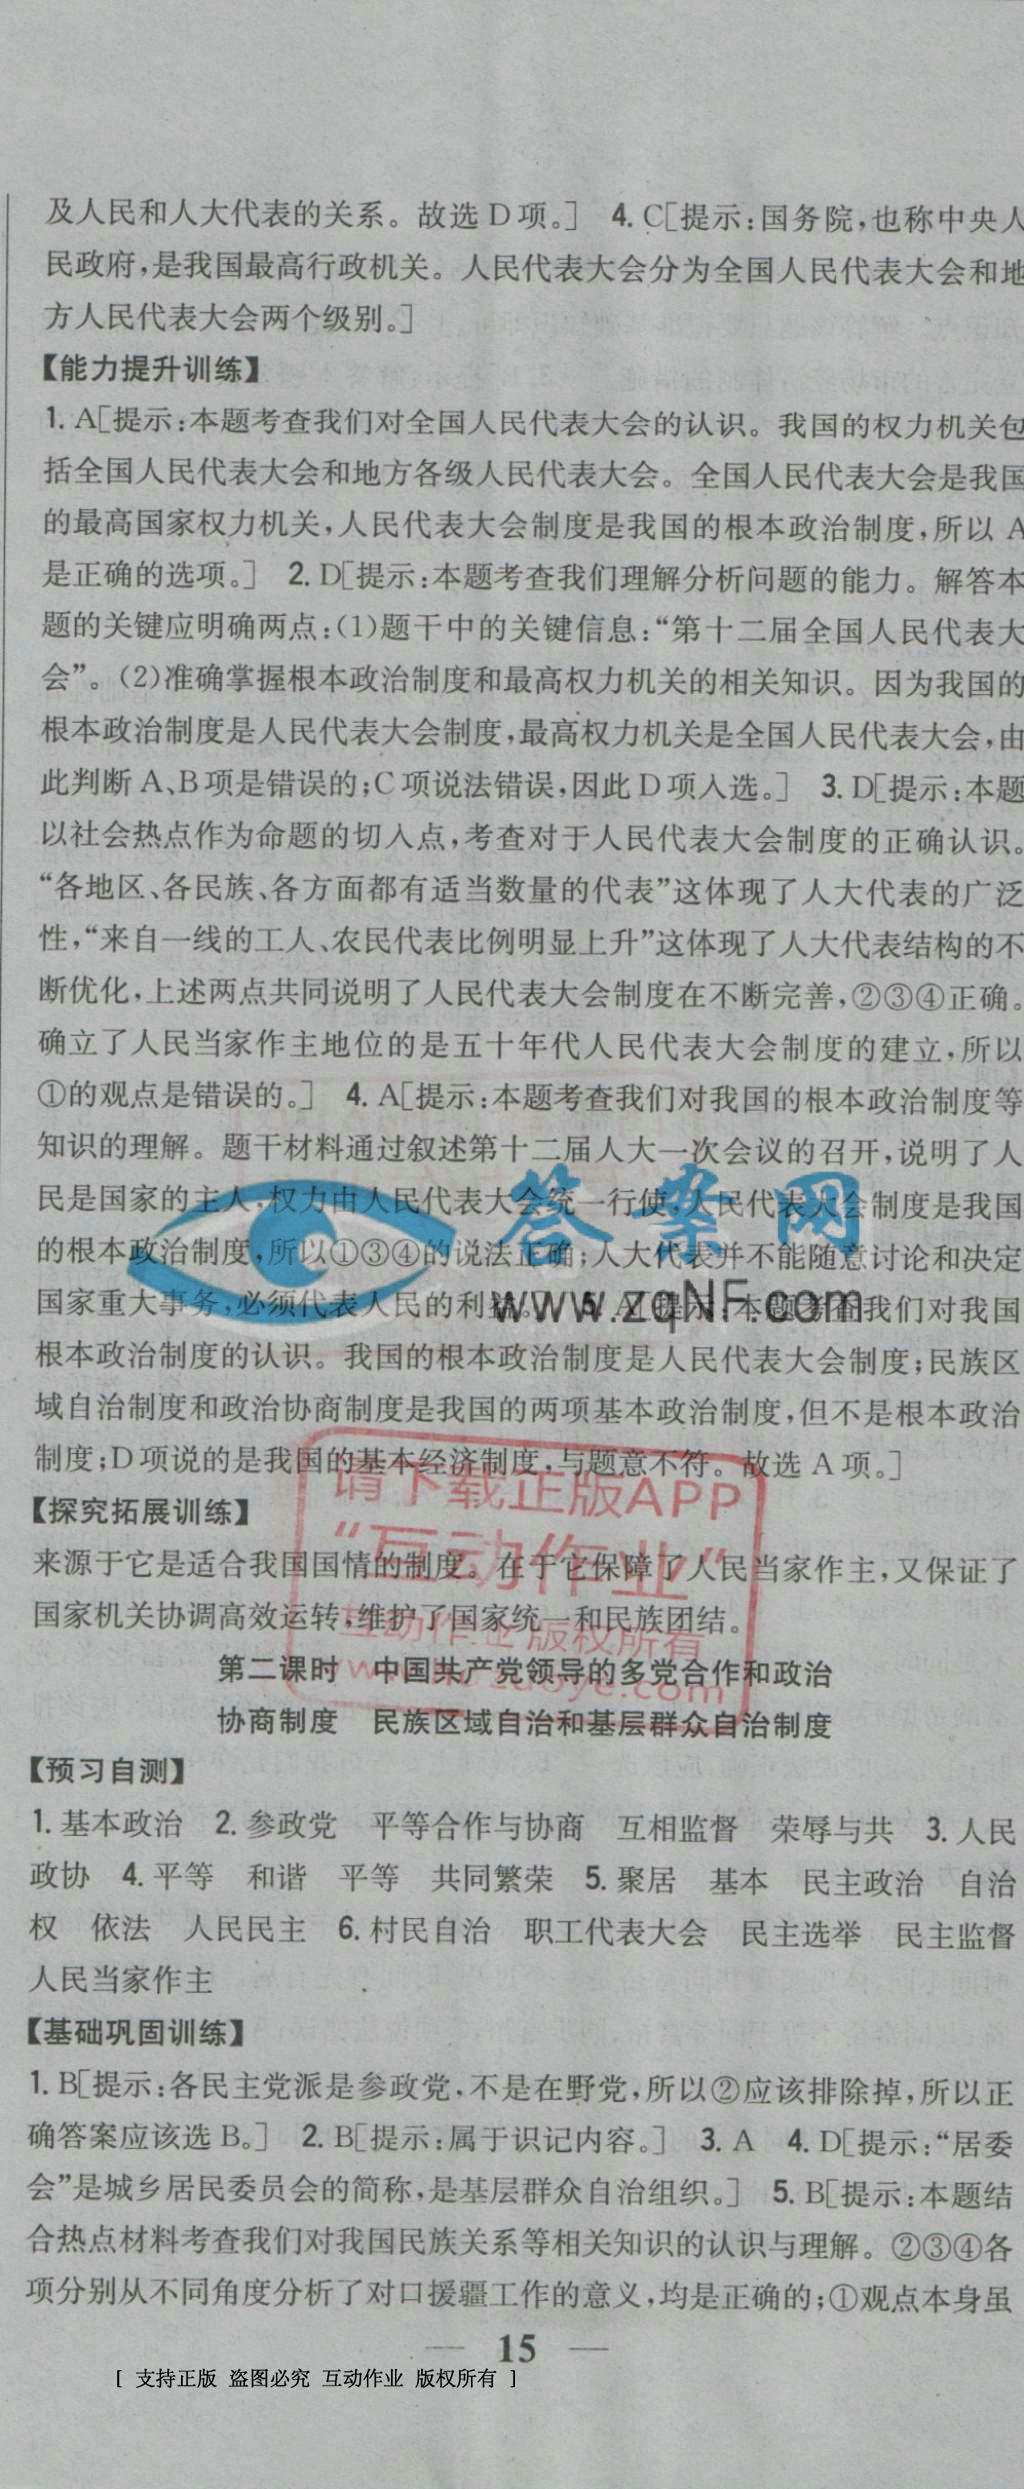 及人民和人大代表的关系。故选D项。] 4. C[提示:国务院,也称中央人
民政府,是我国最高行政机关。人民代表大会分为全国人民代表大会和地
方人民代表大会两个级别。]
【能力提升训练】
1. A[提示:本题考查我们对全国人民代表大会的认识。我国的权力机关包
括全国人民代表大会和地方各级人民代表大会。全国人民代表大会是我国
的最高国家权力机关,人民代表大会制度是我国的根本政治制度,所以A
是正确的选项。] 2. D[提示:本题考查我们理解分析问题的能力。解答本
题的关键应明确两点:(1)题干中的关键信息:“第十二届全国人民代表大
会”。(2)准确掌握根本政治制度和最高权力机关的相关知识。因为我国的
根本政治制度是人民代表大会制度,最高权力机关是全国人民代表大会,由
此判断A、B项是错误的;C项说法错误,因此D项入选。] 3. D[提示:本题
以社会热点作为命题的切入点,考查对于人民代表大会制度的正确认识。
“各地区、各民族、各方面都有适当数量的代表”这体现了人大代表的广泛
性,“来自一线的工人、农民代表比例明显上升”这体现了人大代表结构的不
断优化,上述两点共同说明了人民代表大会制度在不断完善,②③④正确。
确立了人民当家作主地位的是五十年代人民代表大会制度的建立,所以
①的观点是错误的。] 4. A[提示:本题考查我们对我国的根本政治制度等
知识的理解。题干材料通过叙述第十二届人大一次会议的召开,说明了人
民是国家的主人,权力由人民代表大会统一行使,人民代表大会制度是我国
的根本政治制度,所以①③④的说法正确;人大代表并不能随意讨论和决定
国家重大事务,必须代表人民的利益。] 5. A[提示:本题考查我们对我国
根本政治制度的认识。我国的根本政治制度是人民代表大会制度;民族区
域自治制度和政治协商制度是我国的两项基本政治制度,但不是根本政治
制度;D项说的是我国的基本经济制度,与题意不符。故选A项。]
答案网
www.zqNF.com
【探究拓展训练】
来源于它是适合我国国情的制度。在于它保障了人民当家作主,又保证了
国家机关协调高效运转,维护了国家统一和民族团结。
请下载正版APP
“互动作业”
互动作业 版权所有
第二课时 中国共产党领导的多党合作和政治
协商制度 民族区域自治和基层群众自治制度
【预习自测】
1. 基本政治 2. 参政党 平等合作与协商 互相监督 荣辱与共 3. 人民
政协 4. 平等 和谐 平等 共同繁荣 5. 聚居 基本 民主政治 自治
权 依法 人民民主 6. 村民自治 职工代表大会 民主选举 民主监督
人民当家作主
【基础巩固训练】
1. B[提示:各民主党派是参政党,不是在野党,所以②应该排除掉,所以正
确答案应该选B。] 2. B[提示:属于识记内容。] 3. A 4. D[提示:“居委
会”是城乡居民委员会的简称,是基层群众自治组织。] 5. B[提示:本题结
合热点材料考查我们对我国民族关系等相关知识的认识与理解。②③④各
项分别从不同角度分析了对口援疆工作的意义,均是正确的;①观点本身虽
— 15 —
[ 支持正版 盗图必究 互动作业 版权所有 ]